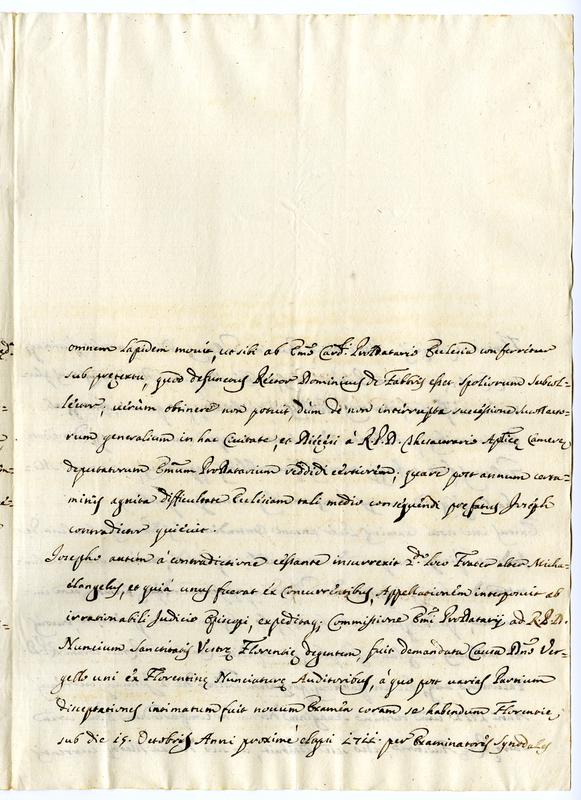 omnem lapidem movit, ut sibi ab Emo Card. ProDatario Ecclesia conferretur
sub prætextu, quod defunctus Rector Dominicus de Fabbris esset spoliorum subcol-
lector; verùm obtinere non potuit, dùm de non interrupta successione
rum generalium in hac Civitate, et Diœcesi à R.P.D. Thesaurario Aplicæ Cameræ
deputatorum Emum ProDatarium reddidi certiorem; quare post annum certa-
minis agnita difficultate Ecclesiam tali medio consequendi præfatus Joseph
contradictor quievit.
Josepho autem à contradictione cessante insurrexit 2.do loco Frater alter Micha-
elangelus, et quià unus fuerat ex Concurrentibus, Appellationem interposuit ab
irrationabili Judicio Episcopi, expeditaq; Commissione Emi ProDatarij ad R.P.D.
Nuncium Sanctitatis Vestræ Florentiæ degentem, fuit demandata Causa Dno Ver-
gello uni ex Florentinæ Nunciaturæ Auditoribus, à quo post varias Partium
disceptationes intimatum fuit novum Examen coram se habendum Florentiæ
sub die 15. Octobris Anni proximè elapsi per Examinatores Synodales